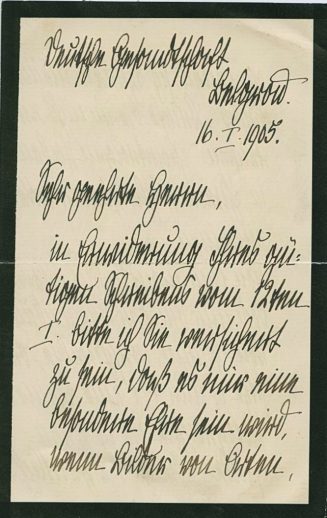 Deutsche Gesandtschaft
Belgrad.
16. I. 1905.
Sehr geehrte Herrn,
in Erwiderung Ihres gü=
tigen Schreibens vom 12ten
I. bitte ich Sie versichert
zu sein, daß es mir eine
besondere Ehre sein wird,
wenn Bilder von